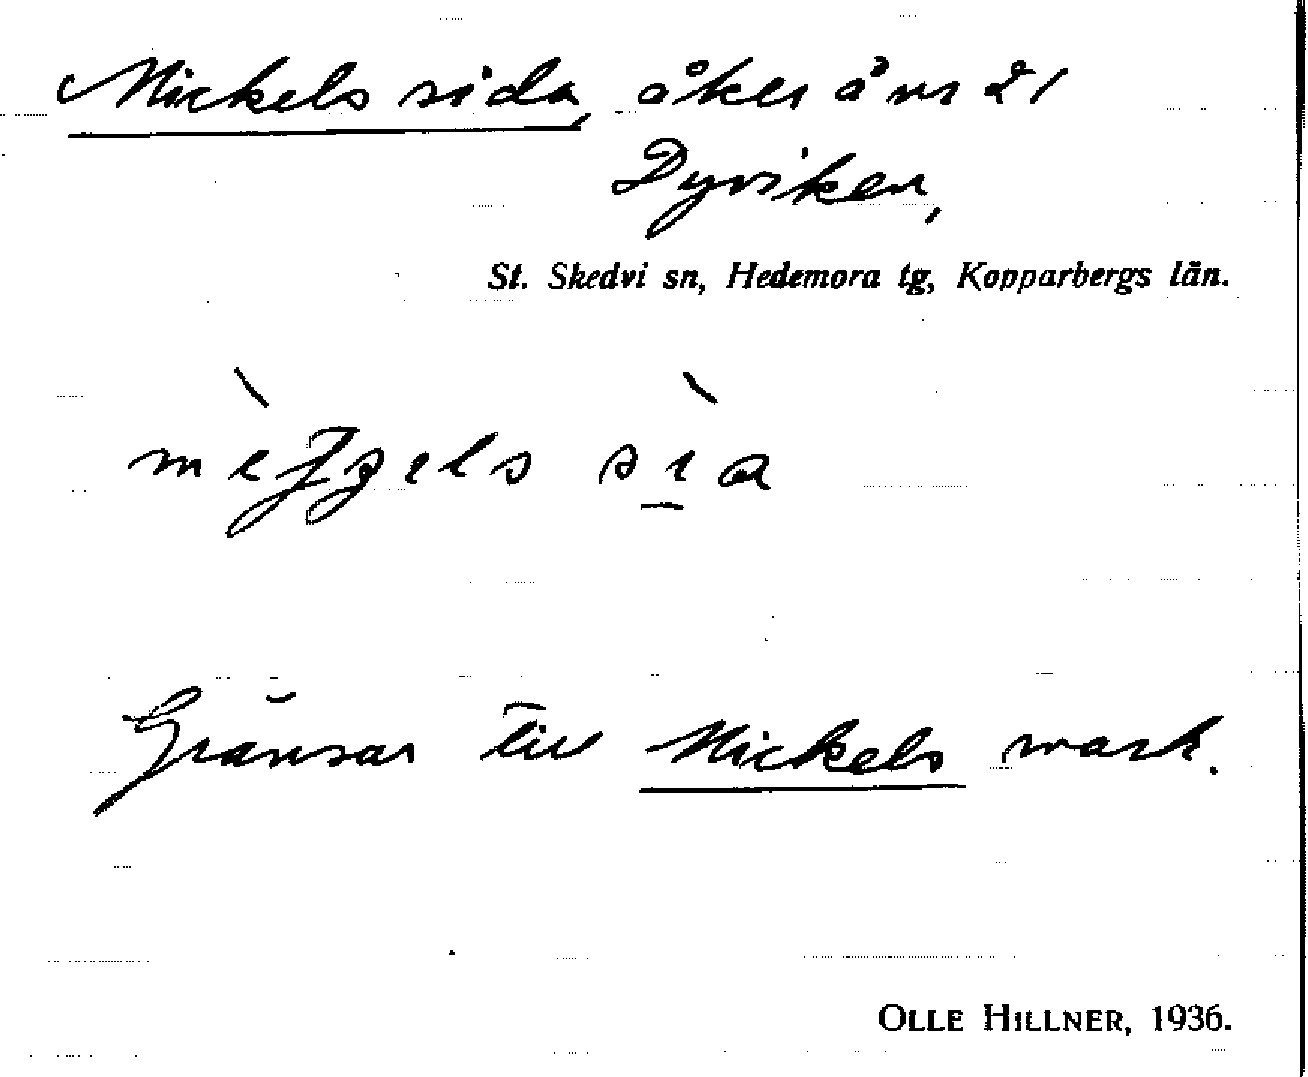 Mickels sida, åker ovan
Dyviken,
St. Skedvi sn, Hedemora tg, Kopparbergs län.
Gränsar till Mickels mark.
OLLE HILLNER, 1936.